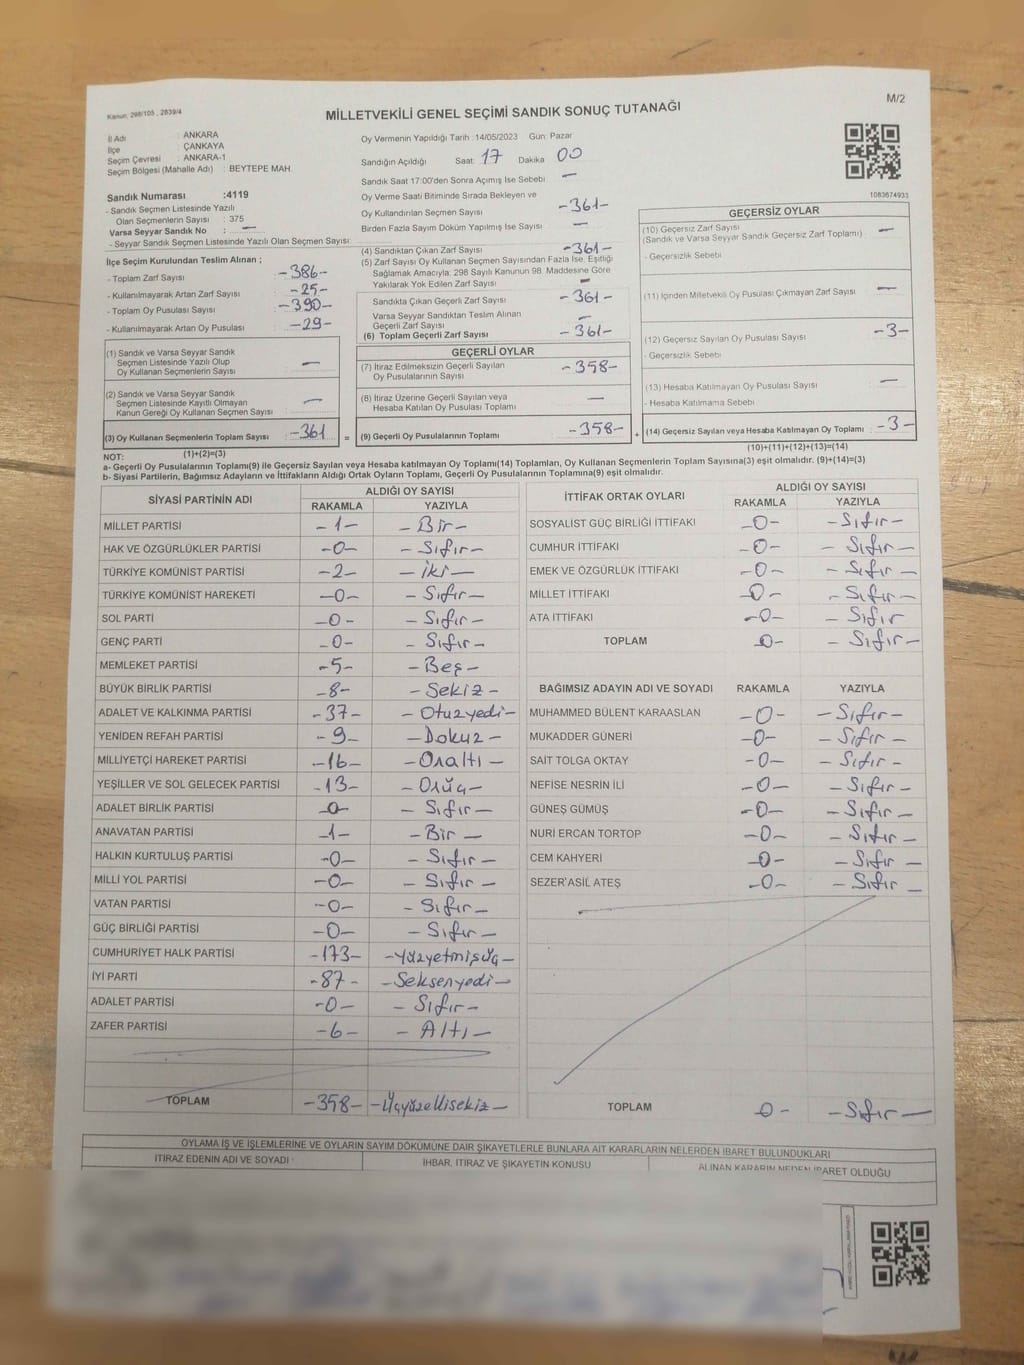 Kanun: 298/105 , 2839/4
MİLLETVEKİLİ GENEL SEÇİMİ SANDIK SONUÇ TUTANAĞI
M/2
İl Adı : ANKARA
İlçe : ÇANKAYA
Seçim Çevresi : ANKARA-1
Seçim Bölgesi (Mahalle Adı) : BEYTEPE MAH.
Sandık Numarası :4119
- Sandık Seçmen Listesinde Yazılı
Olan Seçmenlerin Sayısı : 375
Varsa Seyyar Sandık No : —
- Seyyar Sandık Seçmen Listesinde Yazılı Olan Seçmen Sayısı:
İlçe Seçim Kurulundan Teslim Alınan ;
- Toplam Zarf Sayısı -386-
- Kullanılmayarak Artan Zarf Sayısı -25-
- Toplam Oy Pusulası Sayısı -390-
- Kullanılmayarak Artan Oy Pusulası -29-
(1) Sandık ve Varsa Seyyar Sandık
Seçmen Listesinde Yazılı Olup
Oy Kullanan Seçmenlerin Sayısı —
(2) Sandık ve Varsa Seyyar Sandık
Seçmen Listesinde Kayıtlı Olmayan
Kanun Gereği Oy Kullanan Seçmen Sayısı —
(3) Oy Kullanan Seçmenlerin Toplam Sayısı -361 =
(1)+(2)=(3)
Oy Vermenin Yapıldığı Tarih : 14/05/2023 Gün: Pazar
Sandığın Açıldığı Saat: 17 Dakika 00
Sandık Saat 17:00'den Sonra Açılmış İse Sebebi —
Oy Verme Saati Bitiminde Sırada Bekleyen ve
Oy Kullandırılan Seçmen Sayısı -361-
Birden Fazla Sayım Döküm Yapılmış İse Sayısı —
(4) Sandıktan Çıkan Zarf Sayısı -361-
(5) Zarf Sayısı Oy Kullanan Seçmen Sayısından Fazla İse, Eşitliği
Sağlamak Amacıyla; 298 Sayılı Kanunun 98. Maddesine Göre
Yakılarak Yok Edilen Zarf Sayısı —
Sandıkta Çıkan Geçerli Zarf Sayısı -361-
Varsa Seyyar Sandıktan Teslim Alınan
Geçerli Zarf Sayısı —
(6) Toplam Geçerli Zarf Sayısı -361-
GEÇERLİ OYLAR
(7) İtiraz Edilmeksizin Geçerli Sayılan
Oy Pusulalarının Sayısı -358-
(8) İtiraz Üzerine Geçerli Sayılan veya
Hesaba Katılan Oy Pusulası Toplamı —
(9) Geçerli Oy Pusulalarının Toplamı -358- +
1083674933
GEÇERSİZ OYLAR
(10) Geçersiz Zarf Sayısı —
(Sandık ve Varsa Seyyar Sandık Geçersiz Zarf Toplamı)
- Geçersizlik Sebebi
(11) İçinden Milletvekili Oy Pusulası Çıkmayan Zarf Sayısı —
(12) Geçersiz Sayılan Oy Pusulası Sayısı -3-
- Geçersizlik Sebebi
(13) Hesaba Katılmayan Oy Pusulası Sayısı —
- Hesaba Katılmama Sebebi
(14) Geçersiz Sayılan veya Hesaba Katılmayan Oy Toplamı -3-
(10)+(11)+(12)+(13)=(14)
NOT:
a- Geçerli Oy Pusulalarının Toplamı(9) ile Geçersiz Sayılan veya Hesaba katılmayan Oy Toplamı(14) Toplamları, Oy Kullanan Seçmenlerin Toplam Sayısına(3) eşit olmalıdır. (9)+(14)=(3)
b- Siyasi Partilerin, Bağımsız Adayların ve İttifakların Aldığı Ortak Oyların Toplamı, Geçerli Oy Pusulalarının Toplamına(9) eşit olmalıdır.
SİYASİ PARTİNİN ADI ALDIĞI OY SAYISI
RAKAMLA YAZIYLA
MİLLET PARTİSİ -1- -Bir-
HAK VE ÖZGÜRLÜKLER PARTİSİ -0- -Sıfır-
TÜRKİYE KOMÜNİST PARTİSİ -2- -iki-
TÜRKİYE KOMÜNİST HAREKETİ -0- -Sıfır-
SOL PARTİ -0- -Sıfır-
GENÇ PARTİ -0- -Sıfır-
MEMLEKET PARTİSİ -5- -Beş-
BÜYÜK BİRLİK PARTİSİ -8- -Sekiz-
ADALET VE KALKINMA PARTİSİ -37- -Otuzyedi-
YENİDEN REFAH PARTİSİ -9- -Dokuz-
MİLLİYETÇİ HAREKET PARTİSİ -16- -Onaltı-
YEŞİLLER VE SOL GELECEK PARTİSİ -13- -Onüç-
ADALET BİRLİK PARTİSİ -0- -Sıfır-
ANAVATAN PARTİSİ -1- -Bir-
HALKIN KURTULUŞ PARTİSİ -0- -Sıfır-
MİLLİ YOL PARTİSİ -0- -Sıfır-
VATAN PARTİSİ -0- -Sıfır-
GÜÇ BİRLİĞİ PARTİSİ -0- -Sıfır-
CUMHURİYET HALK PARTİSİ -173- -Yüzyetmişüç-
İYİ PARTİ -87- -Seksenyedi-
ADALET PARTİSİ -0- -Sıfır-
ZAFER PARTİSİ -6- -Altı-
TOPLAM -358- -Üçyüzellisekiz-
İTTİFAK ORTAK OYLARI ALDIĞI OY SAYISI
RAKAMLA YAZIYLA
SOSYALİST GÜÇ BİRLİĞİ İTTİFAKI -0- -Sıfır-
CUMHUR İTTİFAKI -0- -Sıfır-
EMEK VE ÖZGÜRLÜK İTTİFAKI -0- -Sıfır-
MİLLET İTTİFAKI -0- -Sıfır-
ATA İTTİFAKI -0- -Sıfır
TOPLAM -0- -Sıfır-
BAĞIMSIZ ADAYIN ADI VE SOYADI RAKAMLA YAZIYLA
MUHAMMED BÜLENT KARAASLAN -0- -Sıfır-
MUKADDER GÜNERİ -0- -Sıfır-
SAİT TOLGA OKTAY -0- -Sıfır-
NEFİSE NESRİN İLİ -0- -Sıfır-
GÜNEŞ GÜMÜŞ -0- -Sıfır-
NURİ ERCAN TORTOP -0- -Sıfır-
CEM KAHYERİ -0- -Sıfır-
SEZER'ASİL ATEŞ -0- -Sıfır-
TOPLAM 0- -Sıfır-
OYLAMA İŞ VE İŞLEMLERİNE VE OYLARIN SAYIM DÖKÜMÜNE DAİR ŞİKAYETLERLE BUNLARA AİT KARARLARIN NELERDEN İBARET BULUNDUKLARI
İTİRAZ EDENİN ADI VE SOYADI : İHBAR, İTİRAZ VE ŞİKAYETİN KONUSU ALINAN KARARIN NEDEN İBARET OLDUĞU